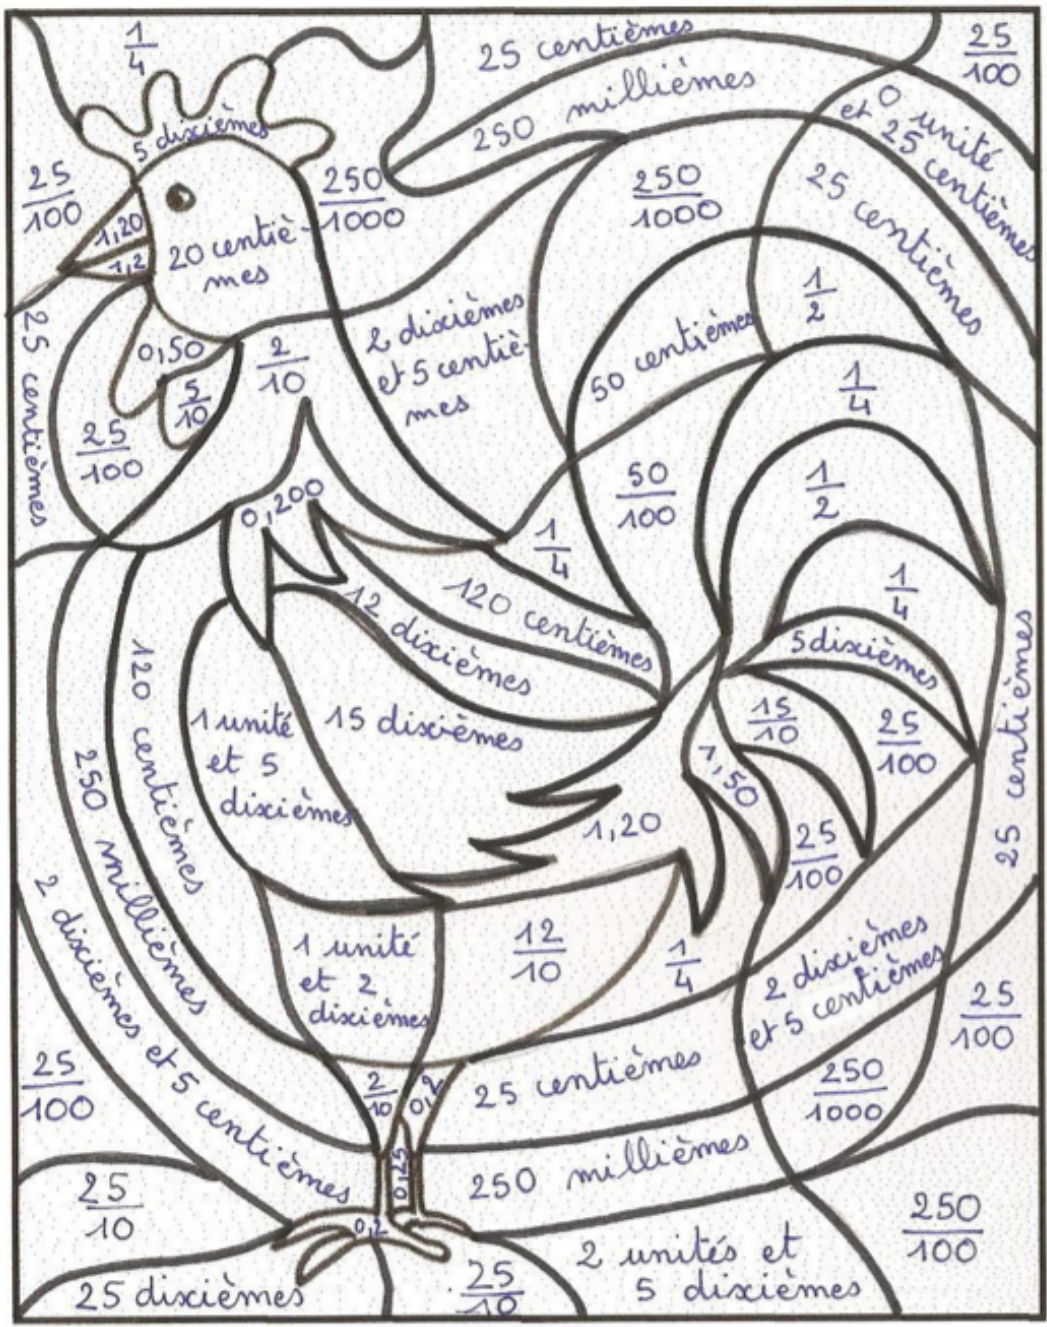 1
4
25 centièmes
25
100
250 millièmes
0 unité
et 25 centièmes
5 dixièmes
25
100
250
1000
250
1000
25 centièmes
1,20
1,2
20 centiè-
mes
25 centièmes
0,50
2
10
2 dixièmes
et 5 centiè-
mes
50 centièmes
1
2
5
10
25
100
1
4
50
100
1
2
0,200
1
4
120 centièmes
12 dixièmes
1
4
5 dixièmes
25 centièmes
120 centièmes
250 millièmes
1 unité
et 5
dixièmes
15 dixièmes
15
10
25
100
1,50
1,20
25
100
2 dixièmes et 5 centièmes
1 unité
et 2
dixièmes
12
10
1
4
2 dixièmes
et 5 centièmes
25
100
25
100
2
10
0,2
25 centièmes
250
1000
0,125
250 millièmes
25
10
0,2
250
100
25 dixièmes
25
10
2 unités et
5 dixièmes